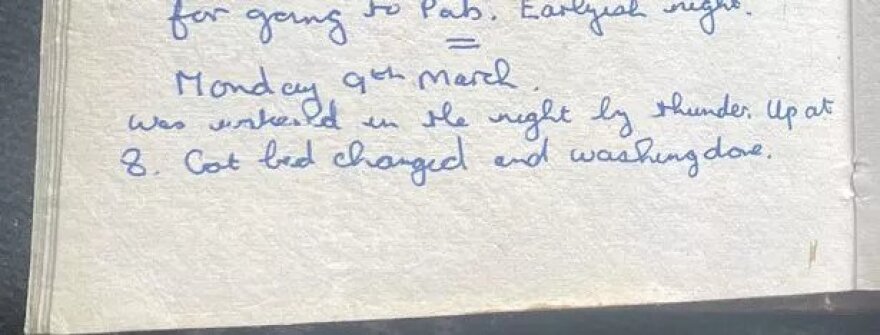 for going to Pab. Earlyish night.
Monday 9th March.
Was in the night by thunder. Up at
8. Got bed changed and washing done.